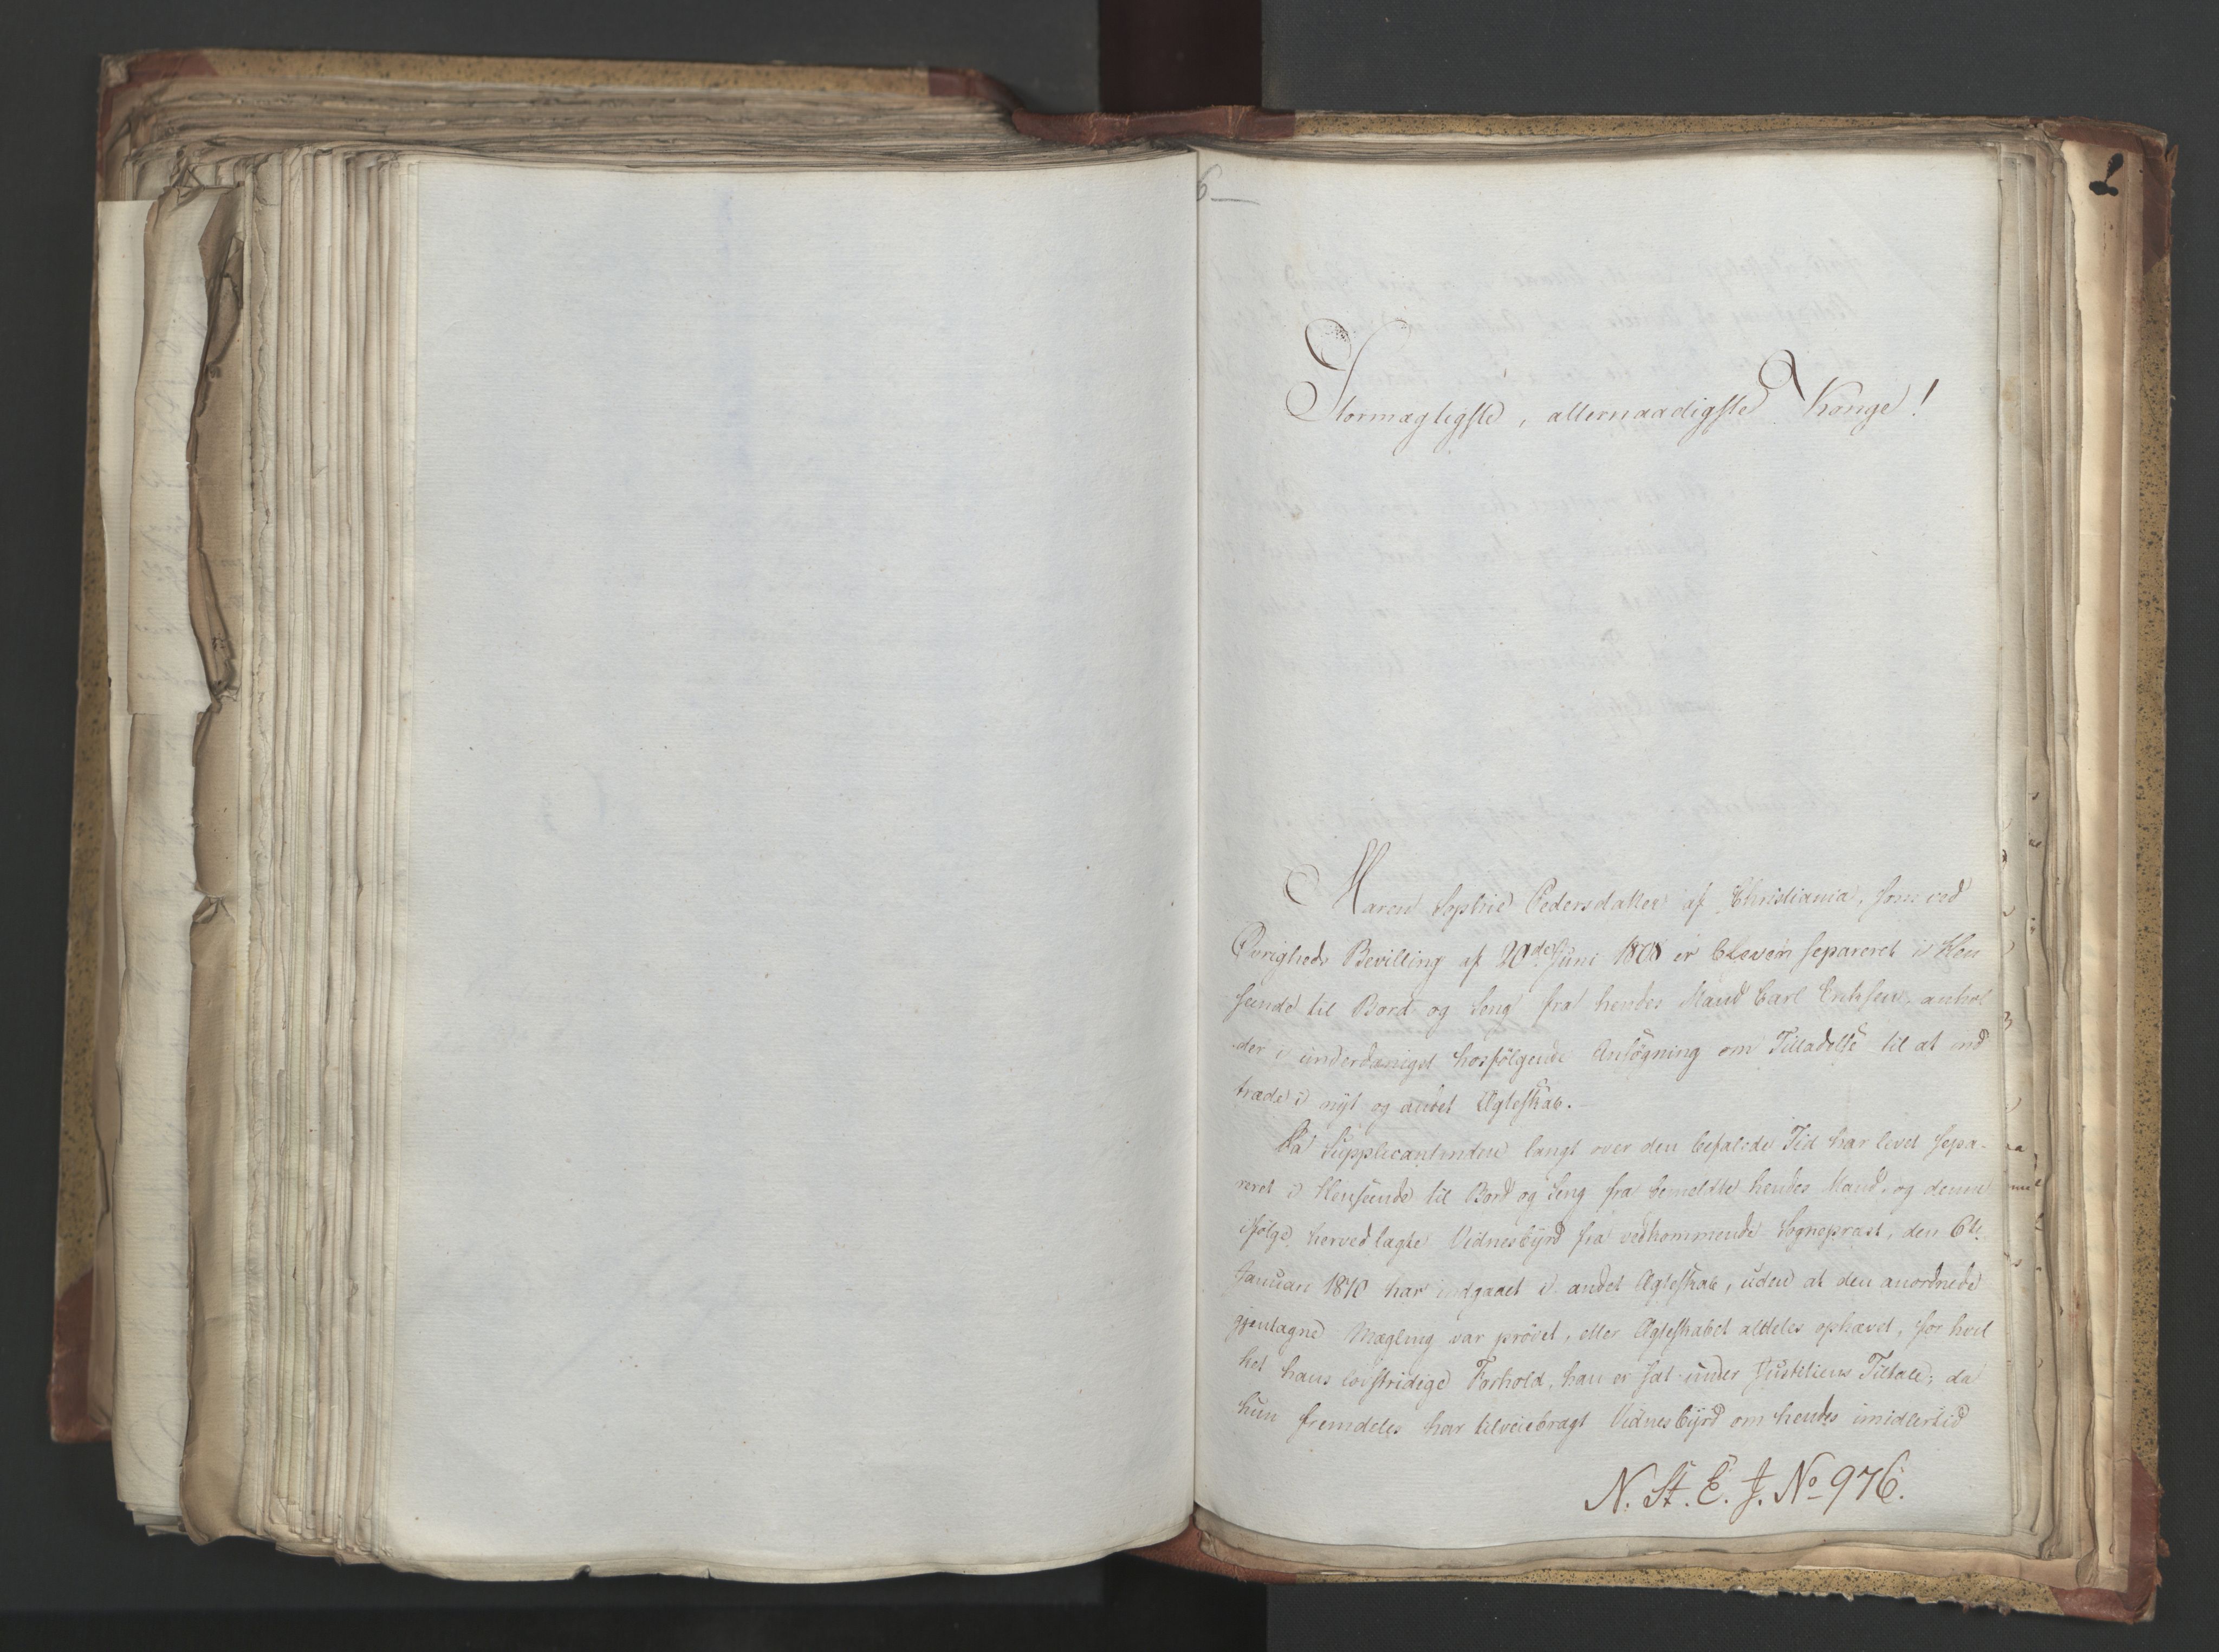 6
Stormægtigste, allernaadigste Konge!
Maren Sophie Pedersdatter af Christiania, som ved
Øvrigheds Bevilling af 20de Juni 1808 er bleven separeret i Hen
seende til Bord og Seng fra hendes Mand Carl Eriksen, anhol
der i underdanigst hosfølgende Ansøgning om Tilladelse til at ind
træde i nyt og andet Ægteskab.
Da Supplicantinden langt over den befalede Tid har levet sepa-
reret i Henseende til Bord og Seng fra bemeldte hendes Mand, og denne
ifølge herved lagte Vidnesbyrd fra vedkommende Sognepræst, den 6te
Januari 1810 har indgaaet i andet Ægteskab, uden at den anordnede
gjentagne Mægling var prøvet, eller Ægteskabet aldeles ophævet, for hvil
ket hans lovstridige Forhold, han er sat under Justitiens Tiltale; da
hun fremdeles har tilveiebragt Vidnesbyrd om hendes imidlertid
N. St. E. J. No 976.